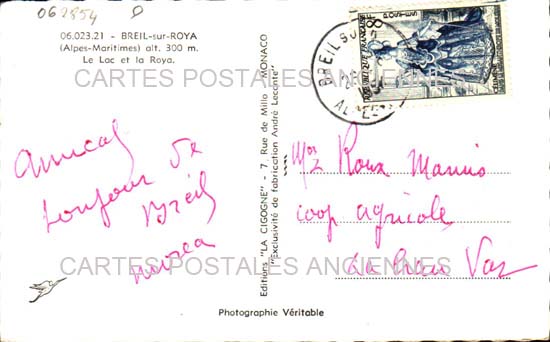 062854
06.023.21 - BREIL-sur-ROYA
(Alpes-Maritimes) alt. 300 m.
Le Lac et la Roya.
CARTES POSTALES ANCIENNES
Amical
bonjour de
Breil
Editions "LA CIGOGNE" - 7, Rue de Millo - MONACO
"Exclusivité de fabrication André Leconte"
BREIL S
Roux Marius
coop agricole
Var
CARTES POSTALES ANCIENNES
Photographie Véritable